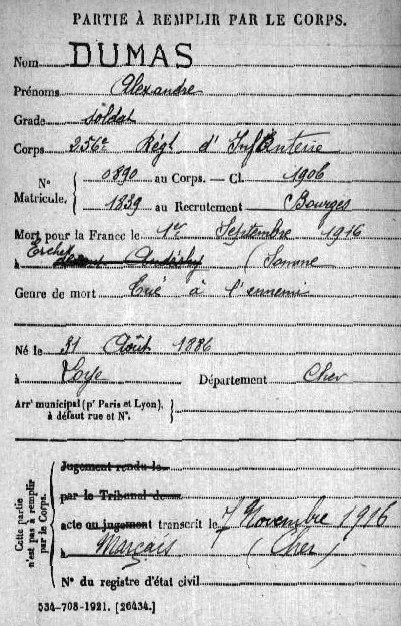 PARTIE À REMPLIR PAR LE CORPS.
Nom DUMAS
Prénoms Alexandre
Grade soldat
Corps 256e Régt d'Infanterie
N° Matricule. 0890 au Corps. — Cl. 1906
1839 au Recrutement Bourges
Mort pour la France le 1er Septembre 1916
à (Somme
Genre de mort Tué à l'ennemi
Né le 31 Août 1886
à Loye Département Cher
Arrt municipal (pr Paris et Lyon), à défaut rue et N°.
Cette partie n'est pas à remplir par le Corps.
Jugement rendu le
par le Tribunal de
acte ou jugement transcrit le 7 Novembre 1916
à Marçais (Cher)
N° du registre d'état civil
534-708-1921. [26434.]